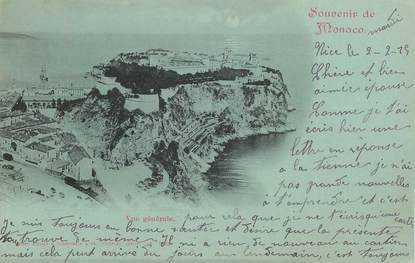 Souvenir de
Monaco.
mardi
Nice le 2-2-39
Chère et bien
aimée épouse
Comme je t'ai
écris hier une
lettre en réponse
à la tienne je n'ai
pas grande nouvelles
à t'emprendre et c'est
Vue générale.
pour cela que je ne t'écris qu'une carte
Je suis toujours en bonne santé et désire que la présente
vous trouve de même. Il n'y a rien de nouveau au
mais cela peut arrivé du jours au lendemain, c'est toujours